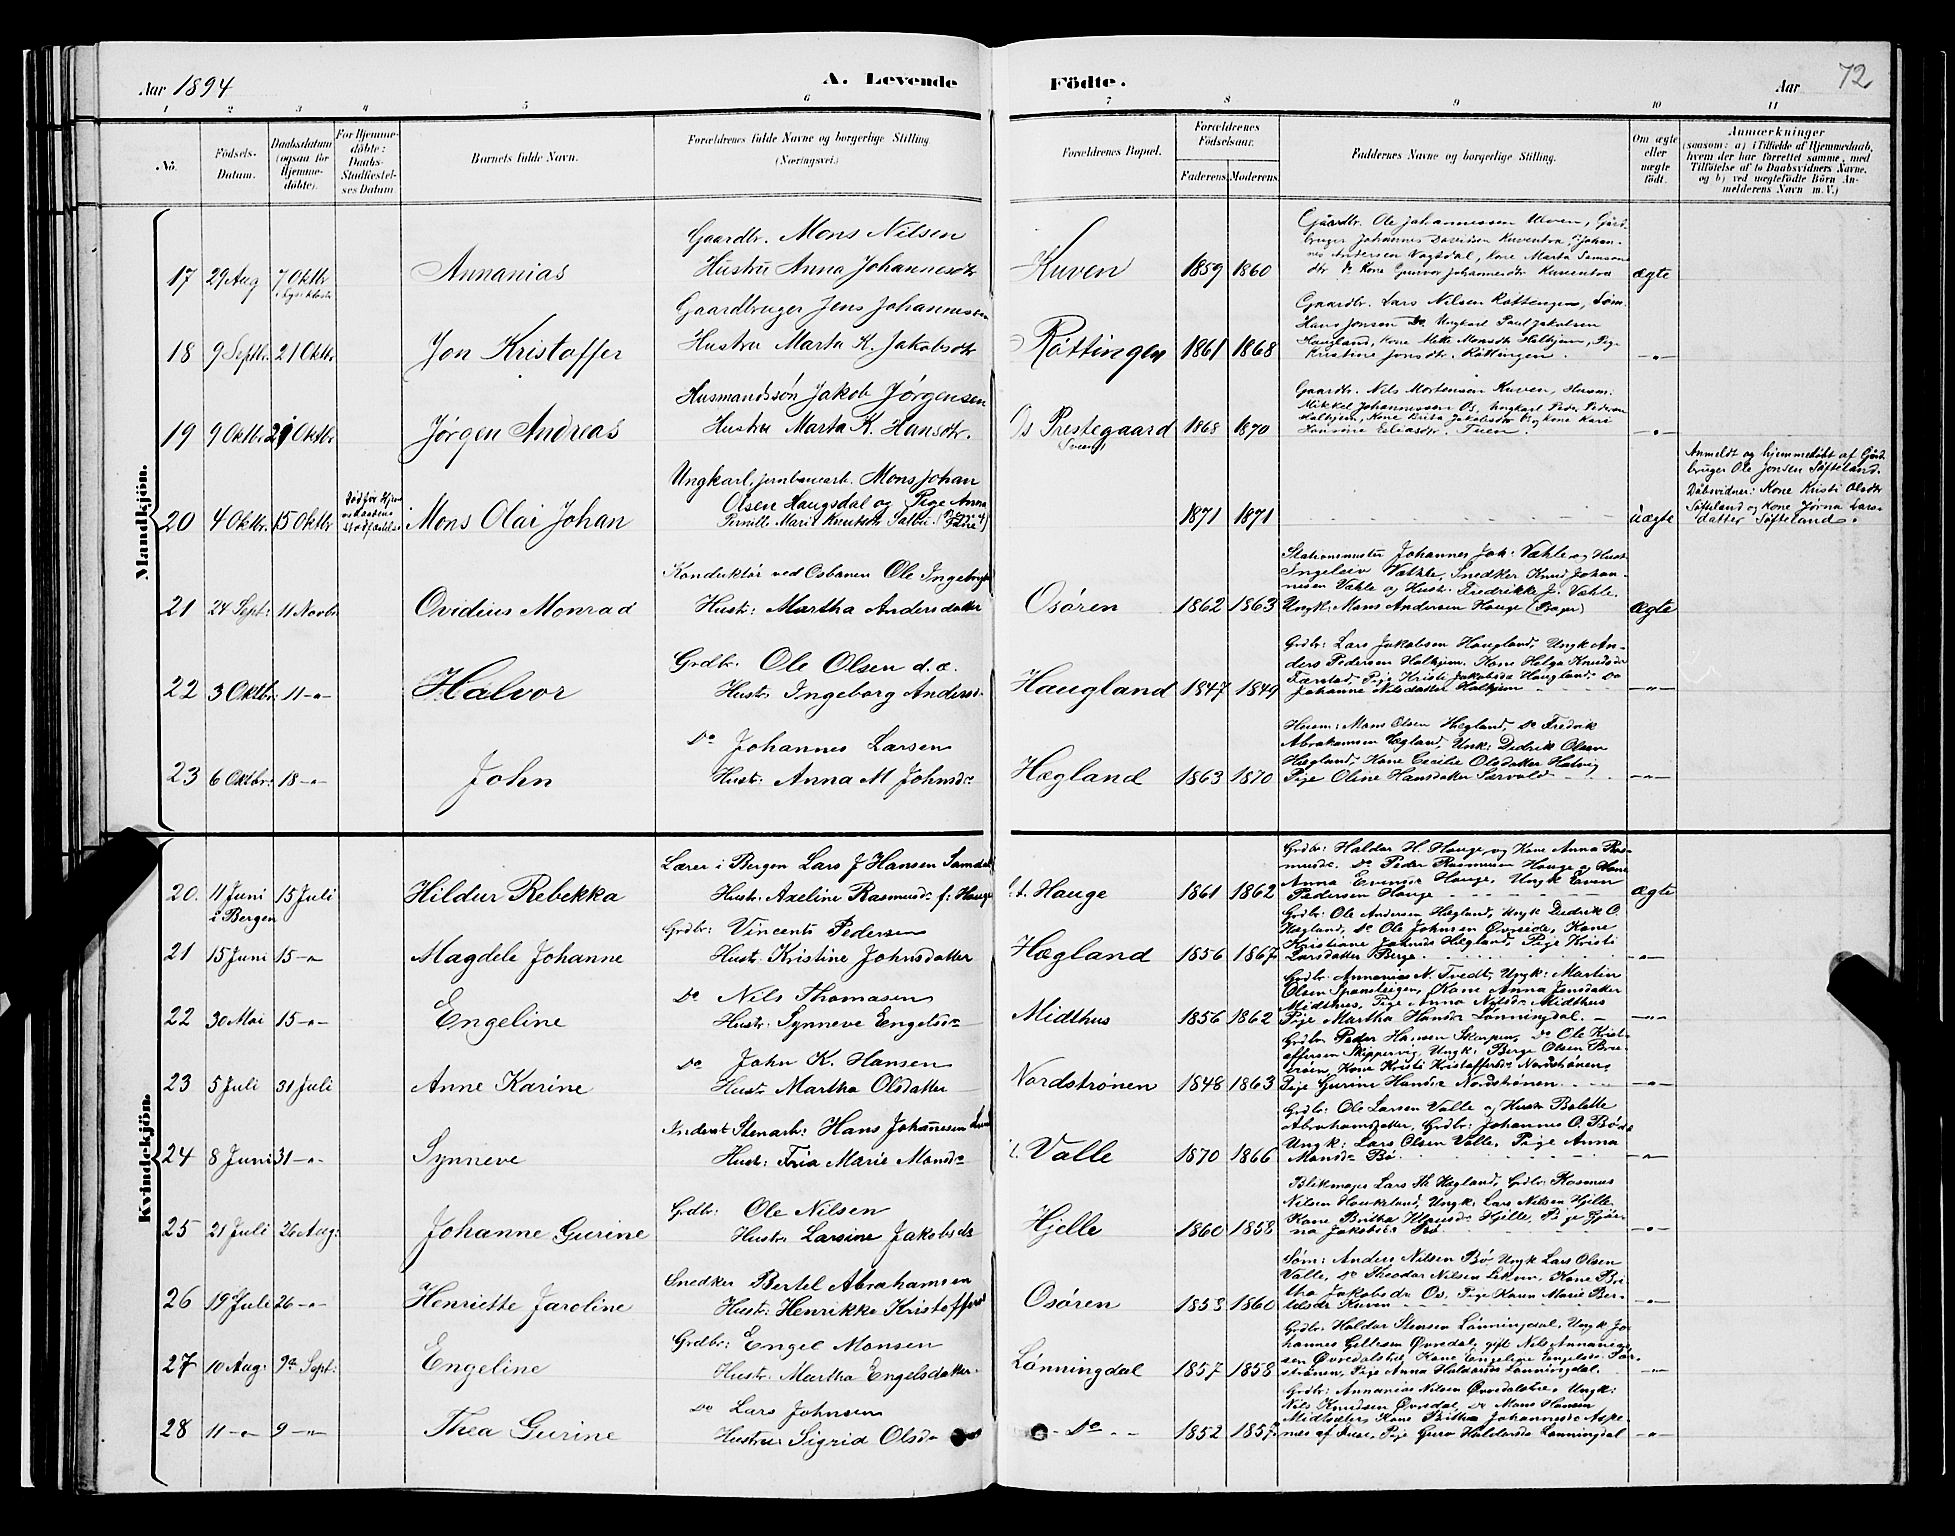 Aar 1894
A. Levende
Födte.
Aar
72
1 2 3 4 5 6 7 8 9 10 11
No.
Födsels-
Datum.
Daabsdatum
(ogsaa for
Hjemme-
döbte).
For Hjemme-
döbte:
Daabs-
Stadfæstel-
ses Datum.
Barnets fulde Navn.
Forældrenes fulde Navne og borgerlige Stilling
(Næringsvei.)
Forældrenes Bopæl.
Forældrenes
Födselsaar.
Faderens. Moderens.
Faddernes Navne og borgerlige Stilling.
Om ægte
eller
uægte
födt.
Anmærkninger
(saasom: a) i Tilfælde af Hjemmedaab,
hvem der har forrettet samme, med
Tilföielse af to Daabsvidners Navne,
og b) ved uægtefödte Börn An-
melderens Navn m. V.)
Mandkjön.
17 29 Aug 7 Oktbr
Annanias
Gaardbr. Mons Nilsen
Hustru Anna Johannesdtr
Kuven 1859 1860
Gaardbr. Ole Johannessen Ulven, Gård-
bruger Johannes Davidsen Kuventræ, Johan-
nes Andersen Vagsdal, Kone Marta Samson
dtr, Do Kone Gunvor Johannesdtr Kuventræ
ægte
18 9 Septbr. 21 Oktbr.
Jon Kristoffer
Gaardbruger Jens Johannessen
Hustru Marta K. Jakobsdtr
Røttingen 1861 1868
Gaardbr. Lars Nilsen Røttingen, Søm.
Hans Jonsen Do Ungkarl Paul Jakobsen
Haugland, Kone Mette Monsdtr Halhjem, Pige
Kristine Jonsdtr. Røttingen.
-"-
19 9 Oktbr. 21 Oktbr
Jørgen Andreas
Husmandssøn Jakob Jørgensen
Hustru Marta K. Hansdtr.
Os Prestegaard 1868 1870
Gaardbr. Nils Mortensen Kuven, Husm.
Mikkel Johannessen Os, Ungkarl Peder Pedersen
Halhjem, Kone Brita Jakobsdtr Kone Kari
Eliasdtr. Tuen.
-"-
20 4 Oktbr. 15 Oktbr
Mons Olai Johan
Ungkarl, jernbanearb. Mons Johan
Olsen Haugsdal og Pige Anna
Pernille Marie Knutsdtr
1871 1871
uægte
Anmeldt og hjemmedøbt af Gård-
bruger Ole Jonsen Søfteland.
Dåbsvidner: Kone Kristi Olsdtr
Søfteland og Kone Jørna Lars-
datter Søfteland.
21 24 Sept: 11 Novbr
Ovidius Monrad
Konduktør ved Osbanen Ole Ingebrigts
Hustr: Martha Andersdatter
Osøren 1862 1863
Stationsmester Johannes Joh: Vahle og Hustr
Ingeleiv Vahle, Snedker Knud Johan-
nesen Vahle og Hustr. Fredrikke J. Vahle.
Ungk: Mons Andersen Hauge (Bager)
Ægte
22 3 Oktbr: 11-"-
Halvor
Grdbr. Ole Olsen d.æ.
Hustr: Ingeborg Andersd.
Haugland 1847 1849
Grdbr: Lars Jakobsen Haugland, Ungk An-
ders Pedersen Halhjem. Kone Helga Knudsdr
Færstad, Pige Kristi Jakobsdr Haugland. Do
Johanne Nilsdatter Halhjem
-"-
23 6 Oktbr: 18-"-
John
Do Johannes Larsen
Hustr. Anna M Johnsdr
Hægland 1863 1870
Husm: Mons Olsen Hægland, Do Fredrik
Abrahamsen Hægland, Ungk: Didrik Olsen
Hægland, Kone Cecilie Olsdatter Hatvig
Pige Oline Hansdatter Særvold
-"-
Kvindekjön.
20. 11 Juni
i Bergen
15 Juli
Hildur Rebekka
Lærer i Bergen Lars J Hansen Samdal
Hustr. Axeline Rasmusdr f: Hauge
t. Hauge 1861 1862
Grdbr: Haldor H. Hauge og Kone Anna Ras-
musdr. Do Peder Rasmusen Hauge og Kone
Anna Evensdr Hauge, Ungk Even
Pedersen Hauge
Ægte
21 15 Juni 15-"-
Magdele Johanne
Grdbr: Vincents Pedersen
Hustr. Kristine Johnsdatter
Hægland 1856 1867
Grdbr: Ole Andersen Hægland, Ungk Didrik O.
Hægland, Do Ole Johnsen Øvreide, Kone
Kristiane Johnsdr Hægland, Pige Kristi
Larsdatter Berge
-"-
22 30 Mai 15-"-
Engeline
Do Nils Thomasen
Hustr: Synneve Engelsdr
Midthus 1856 1862
Grdbr: Annanias N. Tvedt, Ungk: Martin
Olsen, Kone Anna Jensdatter
Midthus, Pige Anna Nilsdr Midthus
Pige Martha Hansdr Lønningdal.
-"-
23 5 Juli 31 Juli
Anne Karine
Do John K. Hansen
Hustr Martha Olsdatter
Nordstrønen 1848 1863
Grdbr. Peder Hansen Skeipen, Do Ole Krist-
offersen Skippervig, Ungk: Berge Olsen
Kone Kristi Kristoffersdr Nordstrønen
Pige Gurine Hansdr Nordstrønen
-"-
24 8 Juni 31-"-
Synneve
Inderst Stenarb: Hans Johannesen
Hustr: Fria Marie Monsdr
Valle 1870 1866
Grdbr: Ole Larsen Valle og Hustr Bolette
Abrahamsdatter, Grdbr: Johannes O. Bø
Ungk: Lars Olsen Valle. Pige Anna
Monsdr Bø
-"-
25 21 Juli 26 Aug:
Johanne Gurine
Grdbr: Ole Nilsen
Hustr Larsine Jakobsdr
Hjelle 1860 1858
Blikmager Lars Hægland, Grdbr Rasmus
Nilsen Haukeland, Ungk: Lars Nilsen Hjelle
Kone Britha Klausdr Hjelle, Pige Gjør-
na Jakobsdr Bø
-"-
26 19 Juli 26-"-
Henriette Jaroline
Snedker Bertel Abrahamsen
Hustr: Henrikke Kristoffersd
Osøren 1853 1860
Søm: Anders Nilsen Bø, Ungk Lars Olsen
Valle, Do Theodor Nilsen, Kone Bri-
tha Jakobsdr Os. Pige Karen Marie Ber-
telsdr Kuven
-"-
27 10 Aug: 9de Sept:
Engeline
Grdbr: Engel Monsen
Hustr: Martha Engelsdatter
Lønningdal 1857 1858
Grdbr: Haldor Stensen Lønningdal, Ungk Jo-
hannes Gitlesen Øvredal, gift Nils Annanias-
sen Øvredalslid, Kone Engeline Engelsdr
Pige Anna Haldorsdr Lønningdal
-"-
28 11-"- 9-"-
Thea Gurine
Do Lars Johnsen
Hustru Sigrid Olsdr
-Do- 1852 1857
Grdbr: Annanias Nilsen Øvredalslid, Ungk:
Nils Knudsen Øvredal, Do Mons Hansen
Kone Britha Johannesdr
Pige Guro Haldorsdr Lønningdal
-"-